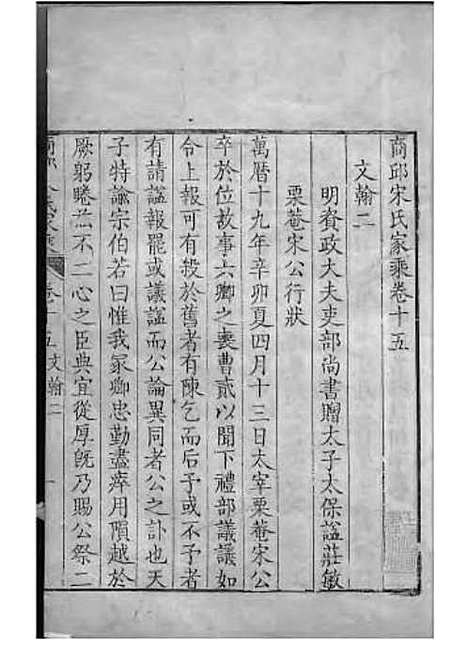 商邱宋氏家乘卷十五
文翰二
明資政大夫吏部尚書贈太子太保諡莊敏
栗菴宋公行狀
萬曆十九年辛卯夏四月十三日太宰栗菴宋公
卒於位故事六卿之喪曹貳以聞下禮部議議如
令上報可有投於舊者有陳乞而后予或不予者
有請諡報罷或議諡而公論異同者公之訃也天
子特諭宗伯若曰惟我冢卿忠勤盡瘁用隕越於
厥躬睠茲不二心之臣典宜從厚旣乃賜公祭二
卷十五文翰二